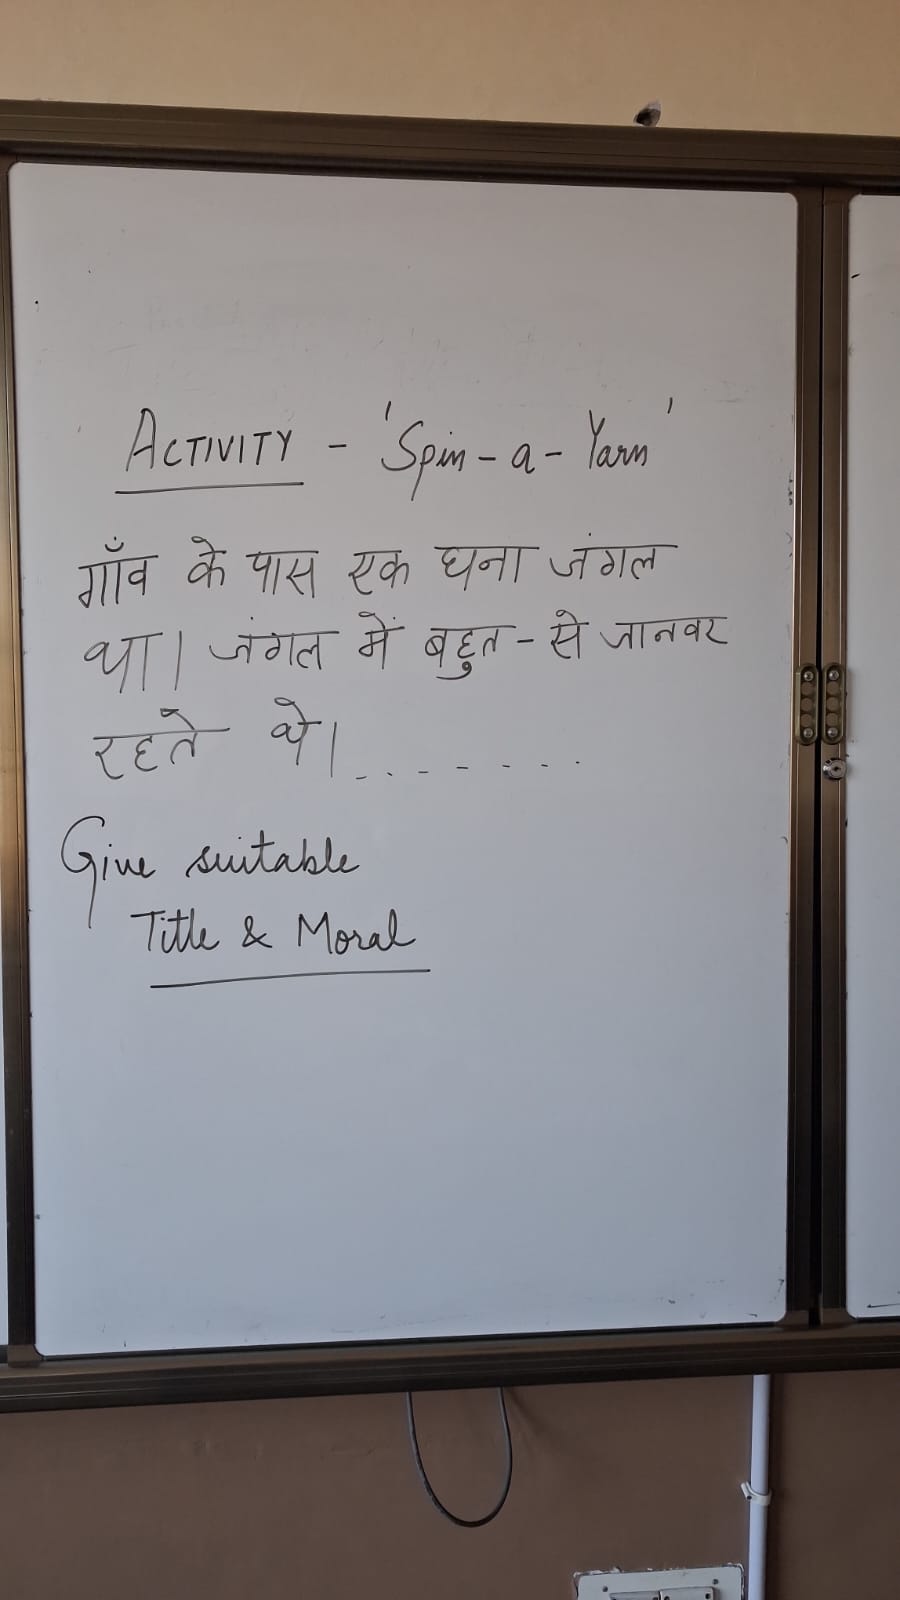 ACTIVITY - 'Spin-a-Yarn'
गाँव के पास एक घना जंगल
था। जंगल में बहुत-से जानवर
रहते थे। . . . . . . . .
Give suitable
Title & Moral